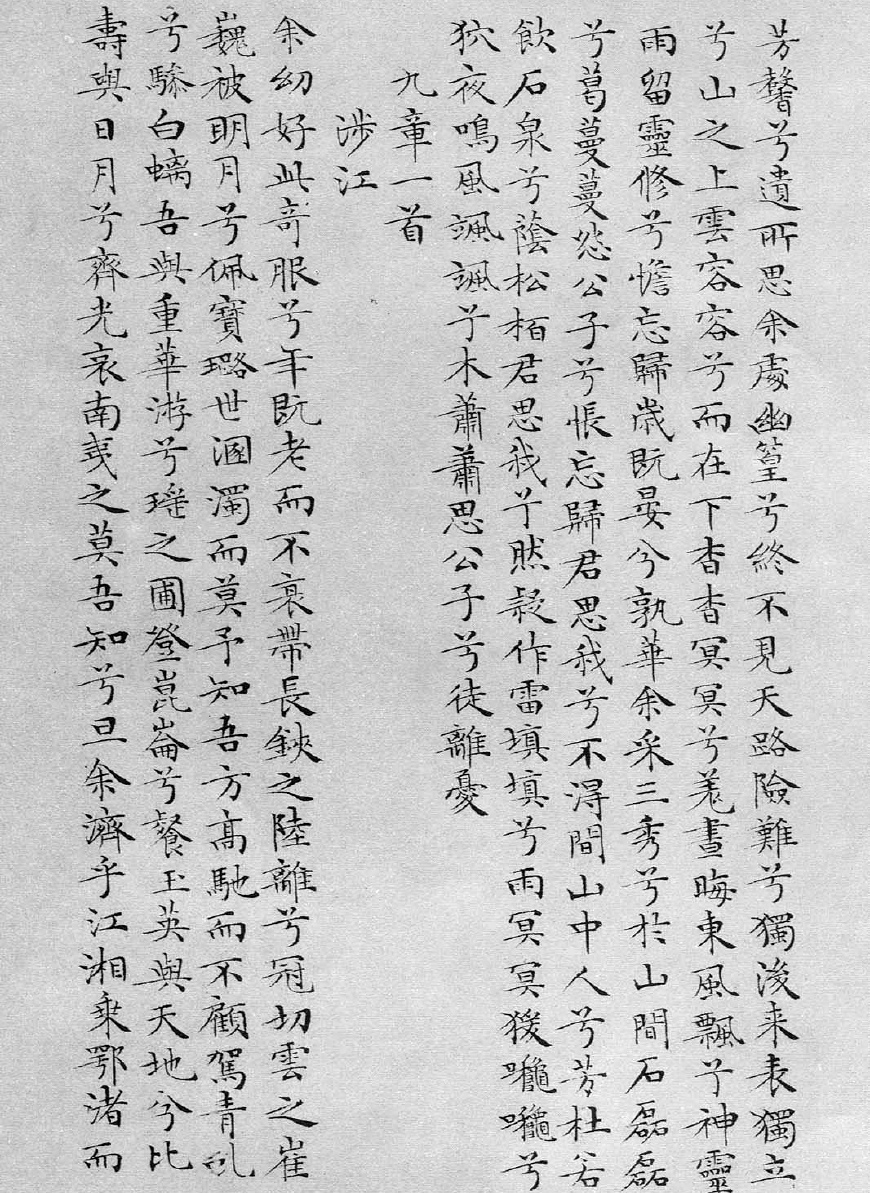 芳馨兮遺所思余處幽篁兮終不見天路險難兮獨後来表獨立
兮山之上雲容容兮而在下杳杳冥冥兮羌晝晦東風飄兮神靈
雨留靈修兮憺忘歸歲既晏兮孰華余采三秀兮於山間石磊磊
兮葛蔓蔓怨公子兮悵忘歸君思我兮不得間山中人兮芳杜若
飲石泉兮蔭松栢君思我兮然疑作雷填填兮雨冥冥猨囖囖兮
狖夜鳴風颯颯兮木蕭蕭思公子兮徒離憂
九章一首
涉江
余幼好此竒服兮年既老而不衰帶長鋏之陸離兮冠切雲之崔
巍被明月兮佩寶璐世溷濁而莫予知吾方髙馳而不顧駕青虬
兮驂白螭吾與重華游兮瑤之圃登崑崙兮餐玉英與天地兮比
壽與日月兮齊光哀南夷之莫吾知兮旦余濟乎江湘乗鄂渚而